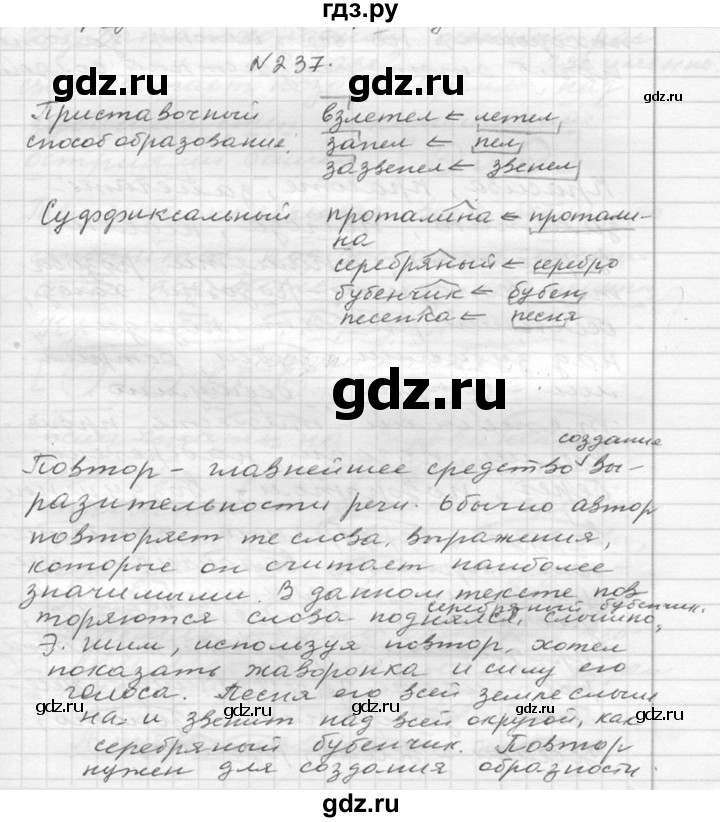 гдз.ру
№237.
gdz.ru gdz.ru
Приставочный взлетел ← летел
способ образование. запел ← пел
зазвенел ← звенел
Суффиксальный проталина ← протали-
на
серебряный ← серебро
бубенчик ← бубен
песенка ← песня
gdz.ru
создание
Повтор – главнейшее средство вы-
разительности речи. Обычно автор
повторяет те слова, выражения,
которые он считает наиболее
значимыми. В данном тексте пов
серебряный бубенчик.
торяются слова поднялся, слышно,
Э. Шим, используя повтор, хотел
показать жаворонка и силу его
голоса. Песня его всей земле слыш
gdz.ru gdz.ru gdz.ru gdz.ru
на и звенит над всей округой, как
серебряный бубенчик. Повтор
нужен для создания образности.
gdz.ru